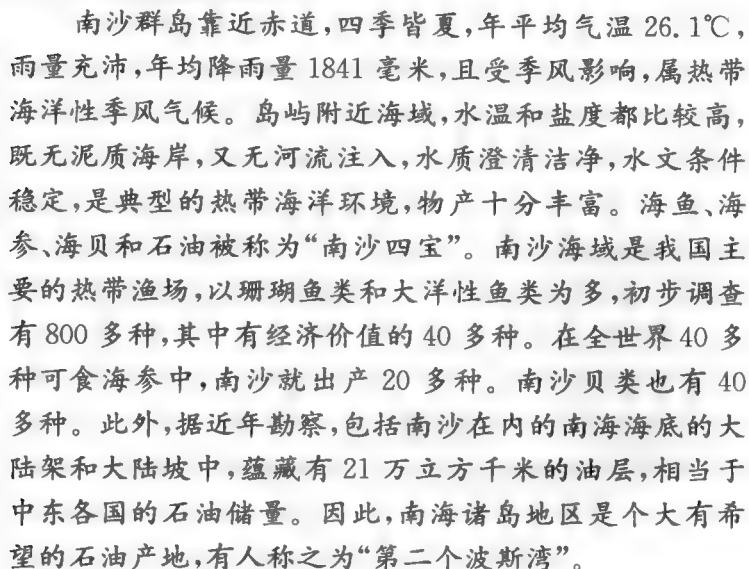 南沙群岛靠近赤道,四季皆夏,年平均气温 26.1℃,
雨量充沛,年均降雨量 1841 毫米,且受季风影响,属热带
海洋性季风气候。岛屿附近海域,水温和盐度都比较高,
既无泥质海岸,又无河流注入,水质澄清洁净,水文条件
稳定,是典型的热带海洋环境,物产十分丰富。海鱼、海
参、海贝和石油被称为“南沙四宝”。南沙海域是我国主
要的热带渔场,以珊瑚鱼类和大洋性鱼类为多,初步调查
有 800 多种,其中有经济价值的 40 多种。在全世界 40 多
种可食海参中,南沙就出产 20 多种。南沙贝类也有 40
多种。此外,据近年勘察,包括南沙在内的南海海底的大
陆架和大陆坡中,蕴藏有 21 万立方千米的油层,相当于
中东各国的石油储量。因此,南海诸岛地区是个大有希
望的石油产地,有人称之为“第二个波斯湾”。